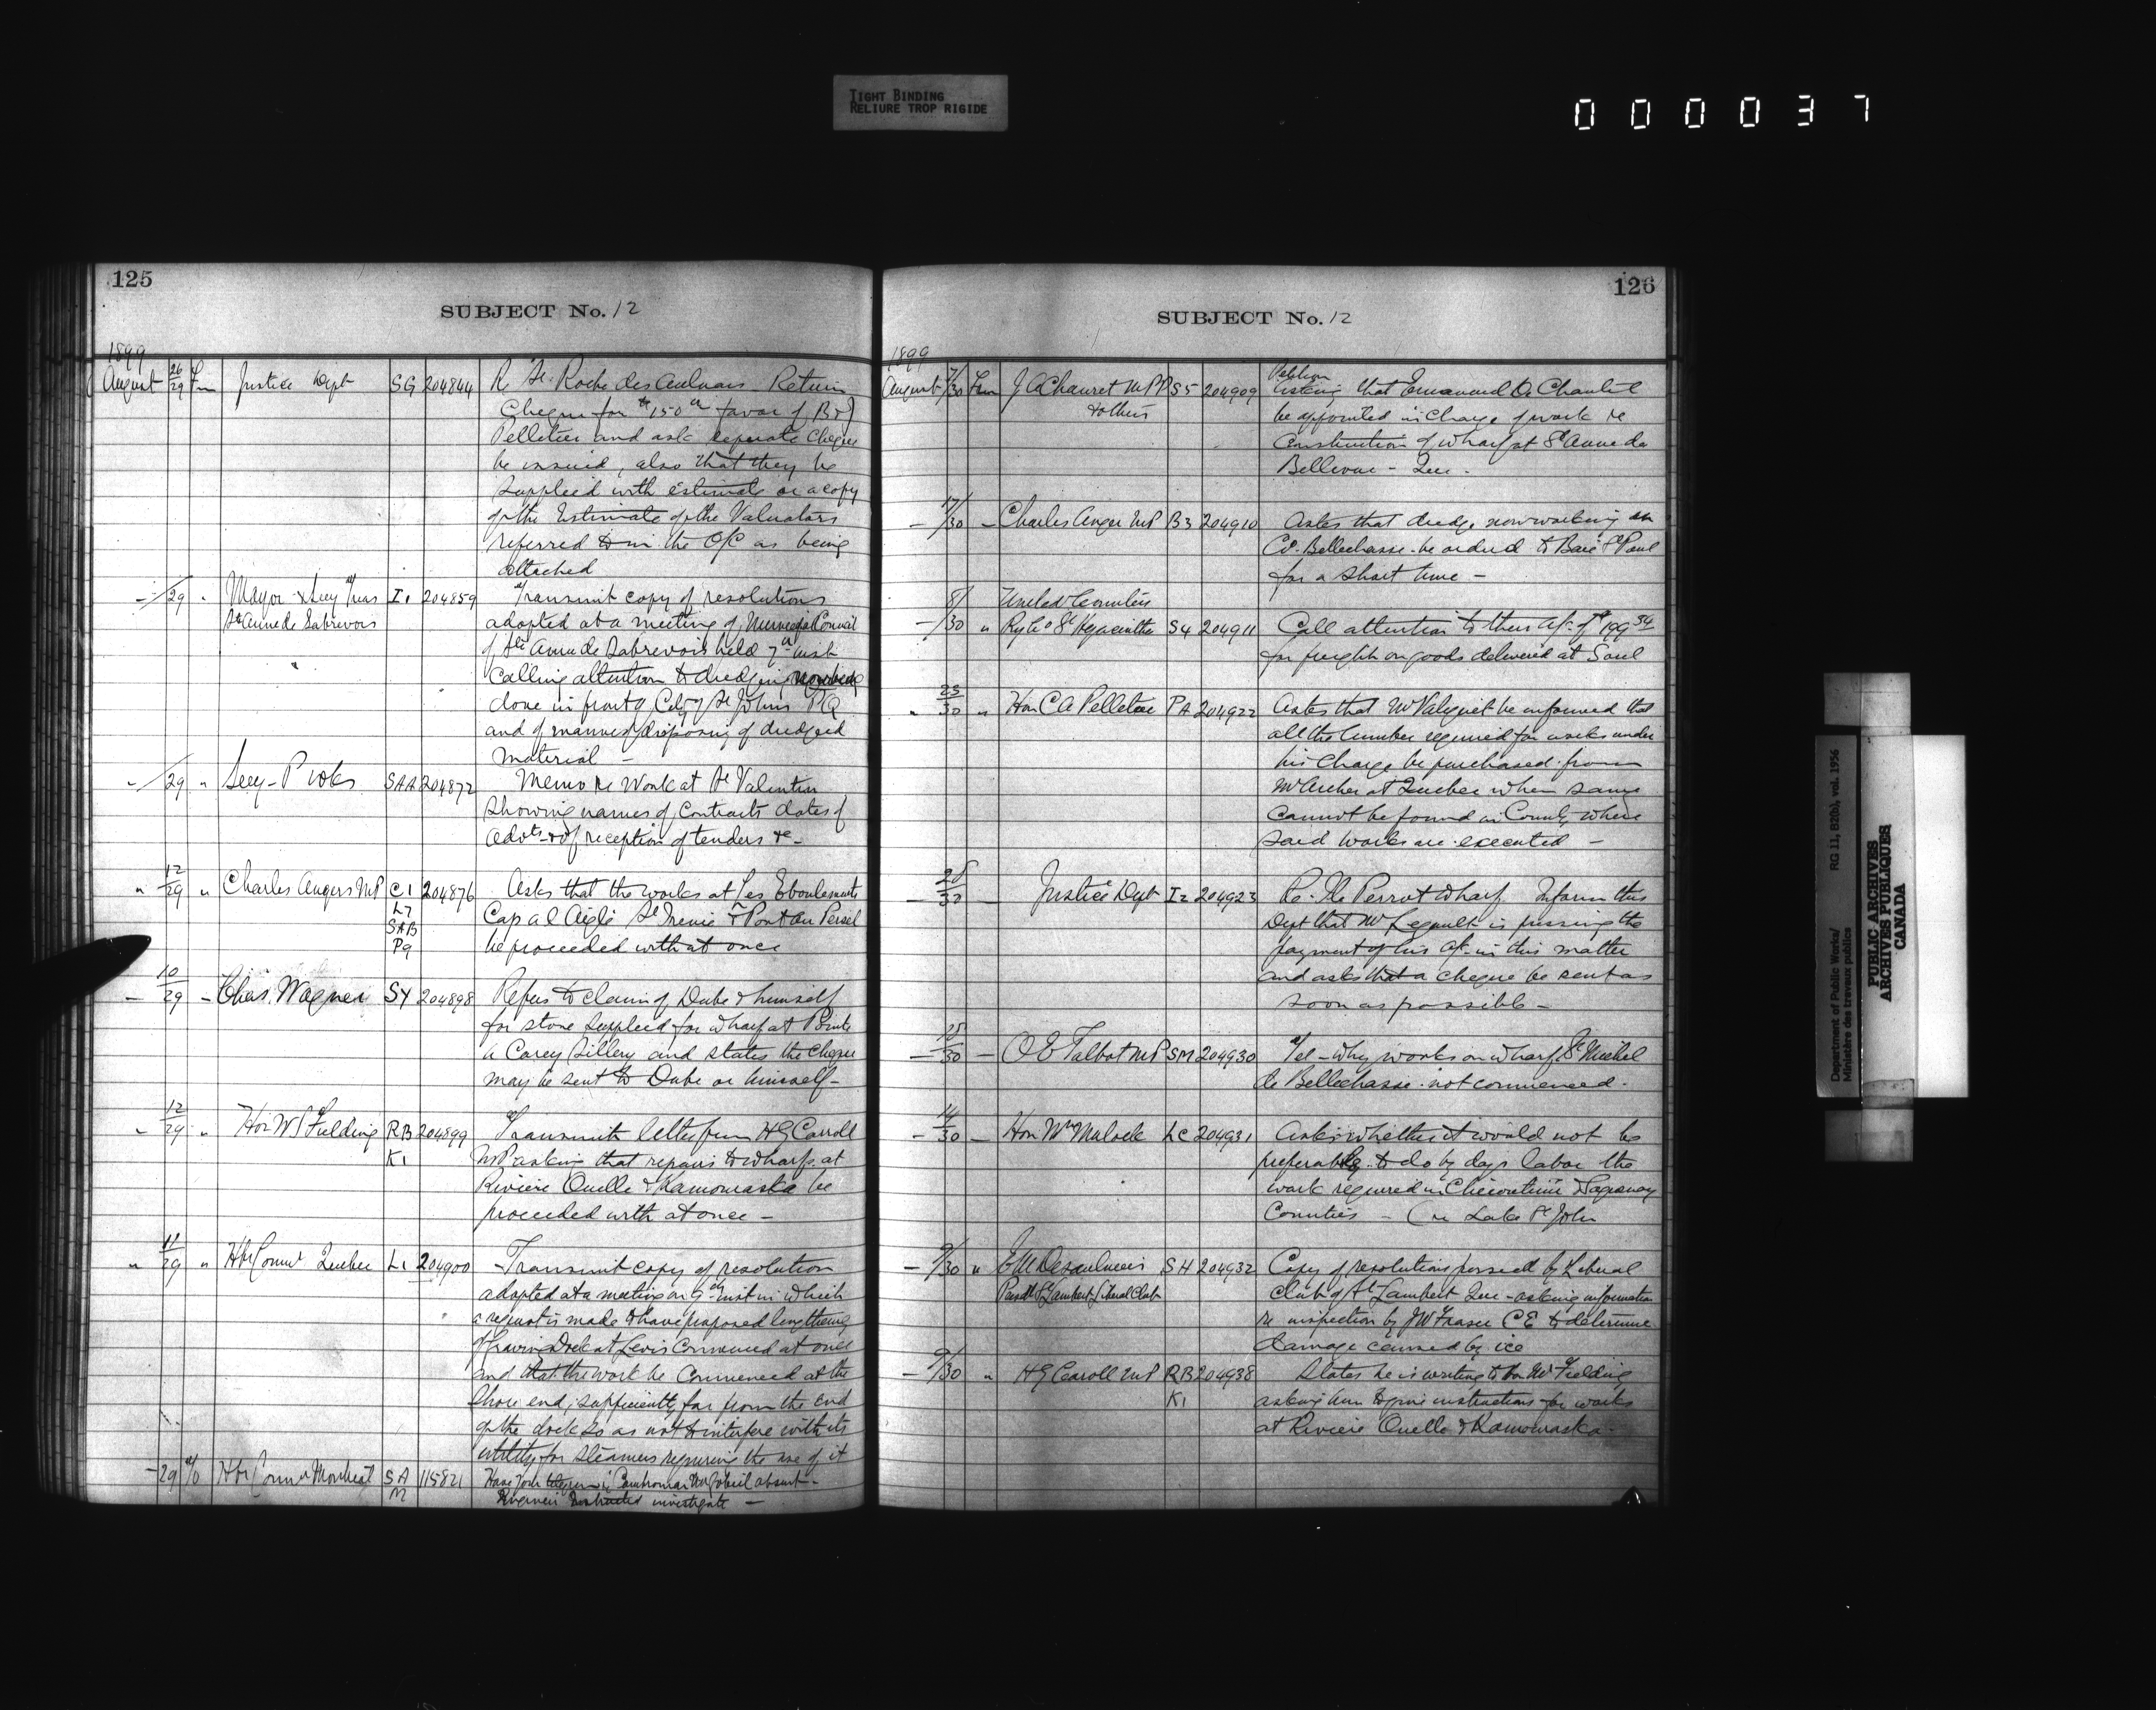 TIGHT BINDING
RELIURE TROP RIGIDE
000037
125
SUBJECT No. 12
1899
August 26/29 Fm Justice Dept SG 204844 R St. Roche des Aulnais Return
Cheque for $150 favor of
Pelletier and ask separate cheque
be issued, also that they be
supplied with estimate or a copy
of the Estimate of the Valuators
referred to in the O/C as being
attached
-/29 " Mayor & Secy Treas I1 204859 Transmit copy of resolutions
St Anne de Sabrevois adopted at a meeting of Municipal Council
of Ste Anne de Sabrevois held 7th inst
calling attention to dredging now being
done in front of City of St Johns PQ
and of manner of disposing of dredged
material -
"/29 " Secy - P Wks SAA 204872 Memo re Work at St Valentin
showing names of Contracts dates of
advts & of reception of tenders &c -
" 12/29 " Charles Angers MP C1 204876 Asks that the works at Les Eboulements
L7 Cap al Aigle St Irenée & Pont au Persel
SAB be proceeded with at once
P9
- 10/29 - Chas. Wagner SY 204898 Refers to claim of Dube & himself
for stone supplied for wharf at Pointe
a Carey Sillery and states the cheque
may be sent to Dube or himself -
" 12/29 " Hon W S Fielding RB 204899 Transmits letter from H G Carroll
K1 MP asking that repairs to wharfs at
Riviere Ouelle & Kamouraska be
proceeded with at once -
" 11/29 " Hbr Commr Quebec L1 204900 Transmit copy of resolution
adopted at a meeting on 9th inst in which
a request is made to have proposed lengthening
of Graving Dock at Levis Commenced at once
and that the work be Commenced at the
Shore end, sufficiently far from the end
of the dock so as not to interfere with its
utility for steamers requiring the use of it
- 29 Hbr Commr Montreal SA 115821 Have your telegram absent -
M Engineer Instructed investigate -
126
SUBJECT No. 12
1899
August 7/30 Fm J A Chauret MPP S5 204909 Petition
& others Asking that Emanuel D. Chantel
be appointed in Charge of work re
Construction of wharf at St Anne de
Bellevue - Que -
- 17/30 - Charles Anger MP B3 204910 Asks that dredge now working in
Co. Bellechasse be ordered to Baie St Paul
for a short time -
8/ United Counties
-/30 " Ry Co St Hyacinthe S4 204911 Call attention to their a/c of $199 34
for freight on goods delivered at Sorel
" 23/30 " Hon C A Pelletier PA 204922 Asks that Mr Valiquet be informed that
all the lumber required for works under
his Charge be purchased from
Mr Archer at Quebec when same
cannot be found in County where
said works are executed -
- 28/30 - Justice Dept I2 204923 Re. Ile Perrot Wharf Inform this
Dept that Mr Legault is pressing the
payment of his a/c in this matter
and asks that a cheque be sent as
soon as possible -
- 15/30 - O E Talbot MP SM 204930 Tel - Why works on wharf St Michel
de Bellechasse not commenced -
- 14/30 - Hon Wm Mulock LC 204931 Asks whether it would not be
preferable to do by days labor the
work required in Chicoutimi & Saguenay
Counties - (re Lake St John
- 9/30 " E M Desaulniers SH 204932 Copy of resolutions passed by Liberal
Presdt St Lambert Liberal Club Club of St Lambert Que - asking information
re inspection by J W Fraser CE to determine
damage caused by ice
- 9/30 " H G Carroll MP RB 204938 States he is writing to Hon Mr Fielding
K1 asking him to give instructions for works
at Riviere Ouelle & Kamouraska -
Department of Public Works/ RG 11, B2(b), vol. 1956
Ministère des travaux publics
PUBLIC ARCHIVES
ARCHIVES PUBLIQUES
CANADA